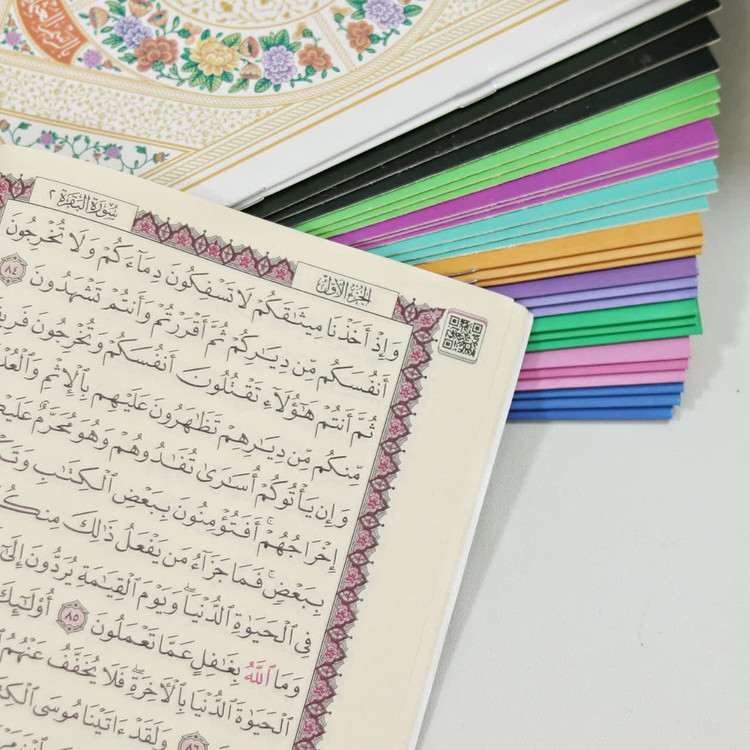 الجزء الأول
سورة البقرة ٢
وَإِذْ أَخَذْنَا مِيثَـٰقَكُمْ لَا تَسْفِكُونَ دِمَآءَكُمْ وَلَا تُخْرِجُونَ
أَنفُسَكُم مِّن دِيَـٰرِكُمْ ثُمَّ أَقْرَرْتُمْ وَأَنتُمْ تَشْهَدُونَ ٨٤
ثُمَّ أَنتُمْ هَـٰٓؤُلَآءِ تَقْتُلُونَ أَنفُسَكُمْ وَتُخْرِجُونَ فَرِيق
مِّنكُم مِّن دِيَـٰرِهِمْ تَظَـٰهَرُونَ عَلَيْهِم بِٱلْإِثْمِ وَٱلْعُدْ
وَإِن يَأْتُوكُمْ أُسَـٰرَىٰ تُفَـٰدُوهُمْ وَهُوَ مُحَرَّمٌ عَلَيْ
إِخْرَاجُهُمْ ۚ أَفَتُؤْمِنُونَ بِبَعْضِ ٱلْكِتَـٰبِ وَتَكْ
بِبَعْضٍ ۚ فَمَا جَزَآءُ مَن يَفْعَلُ ذَٰلِكَ مِنكُ
فِى ٱلْحَيَوٰةِ ٱلدُّنْيَا ۖ وَيَوْمَ ٱلْقِيَـٰمَةِ يُرَدُّونَ إِلَىٰٓ
وَمَا ٱللَّهُ بِغَـٰفِلٍ عَمَّا تَعْمَلُونَ ٨٥ أُو۟لَـٰٓئِكَ
ٱلْحَيَوٰةَ ٱلدُّنْيَا بِٱلْـَٔاخِرَةِ ۖ فَلَا يُخَفَّفُ عَنْهُمُ
٨٦ وَلَقَدْ ءَاتَيْنَا مُوسَى ٱلْكِ